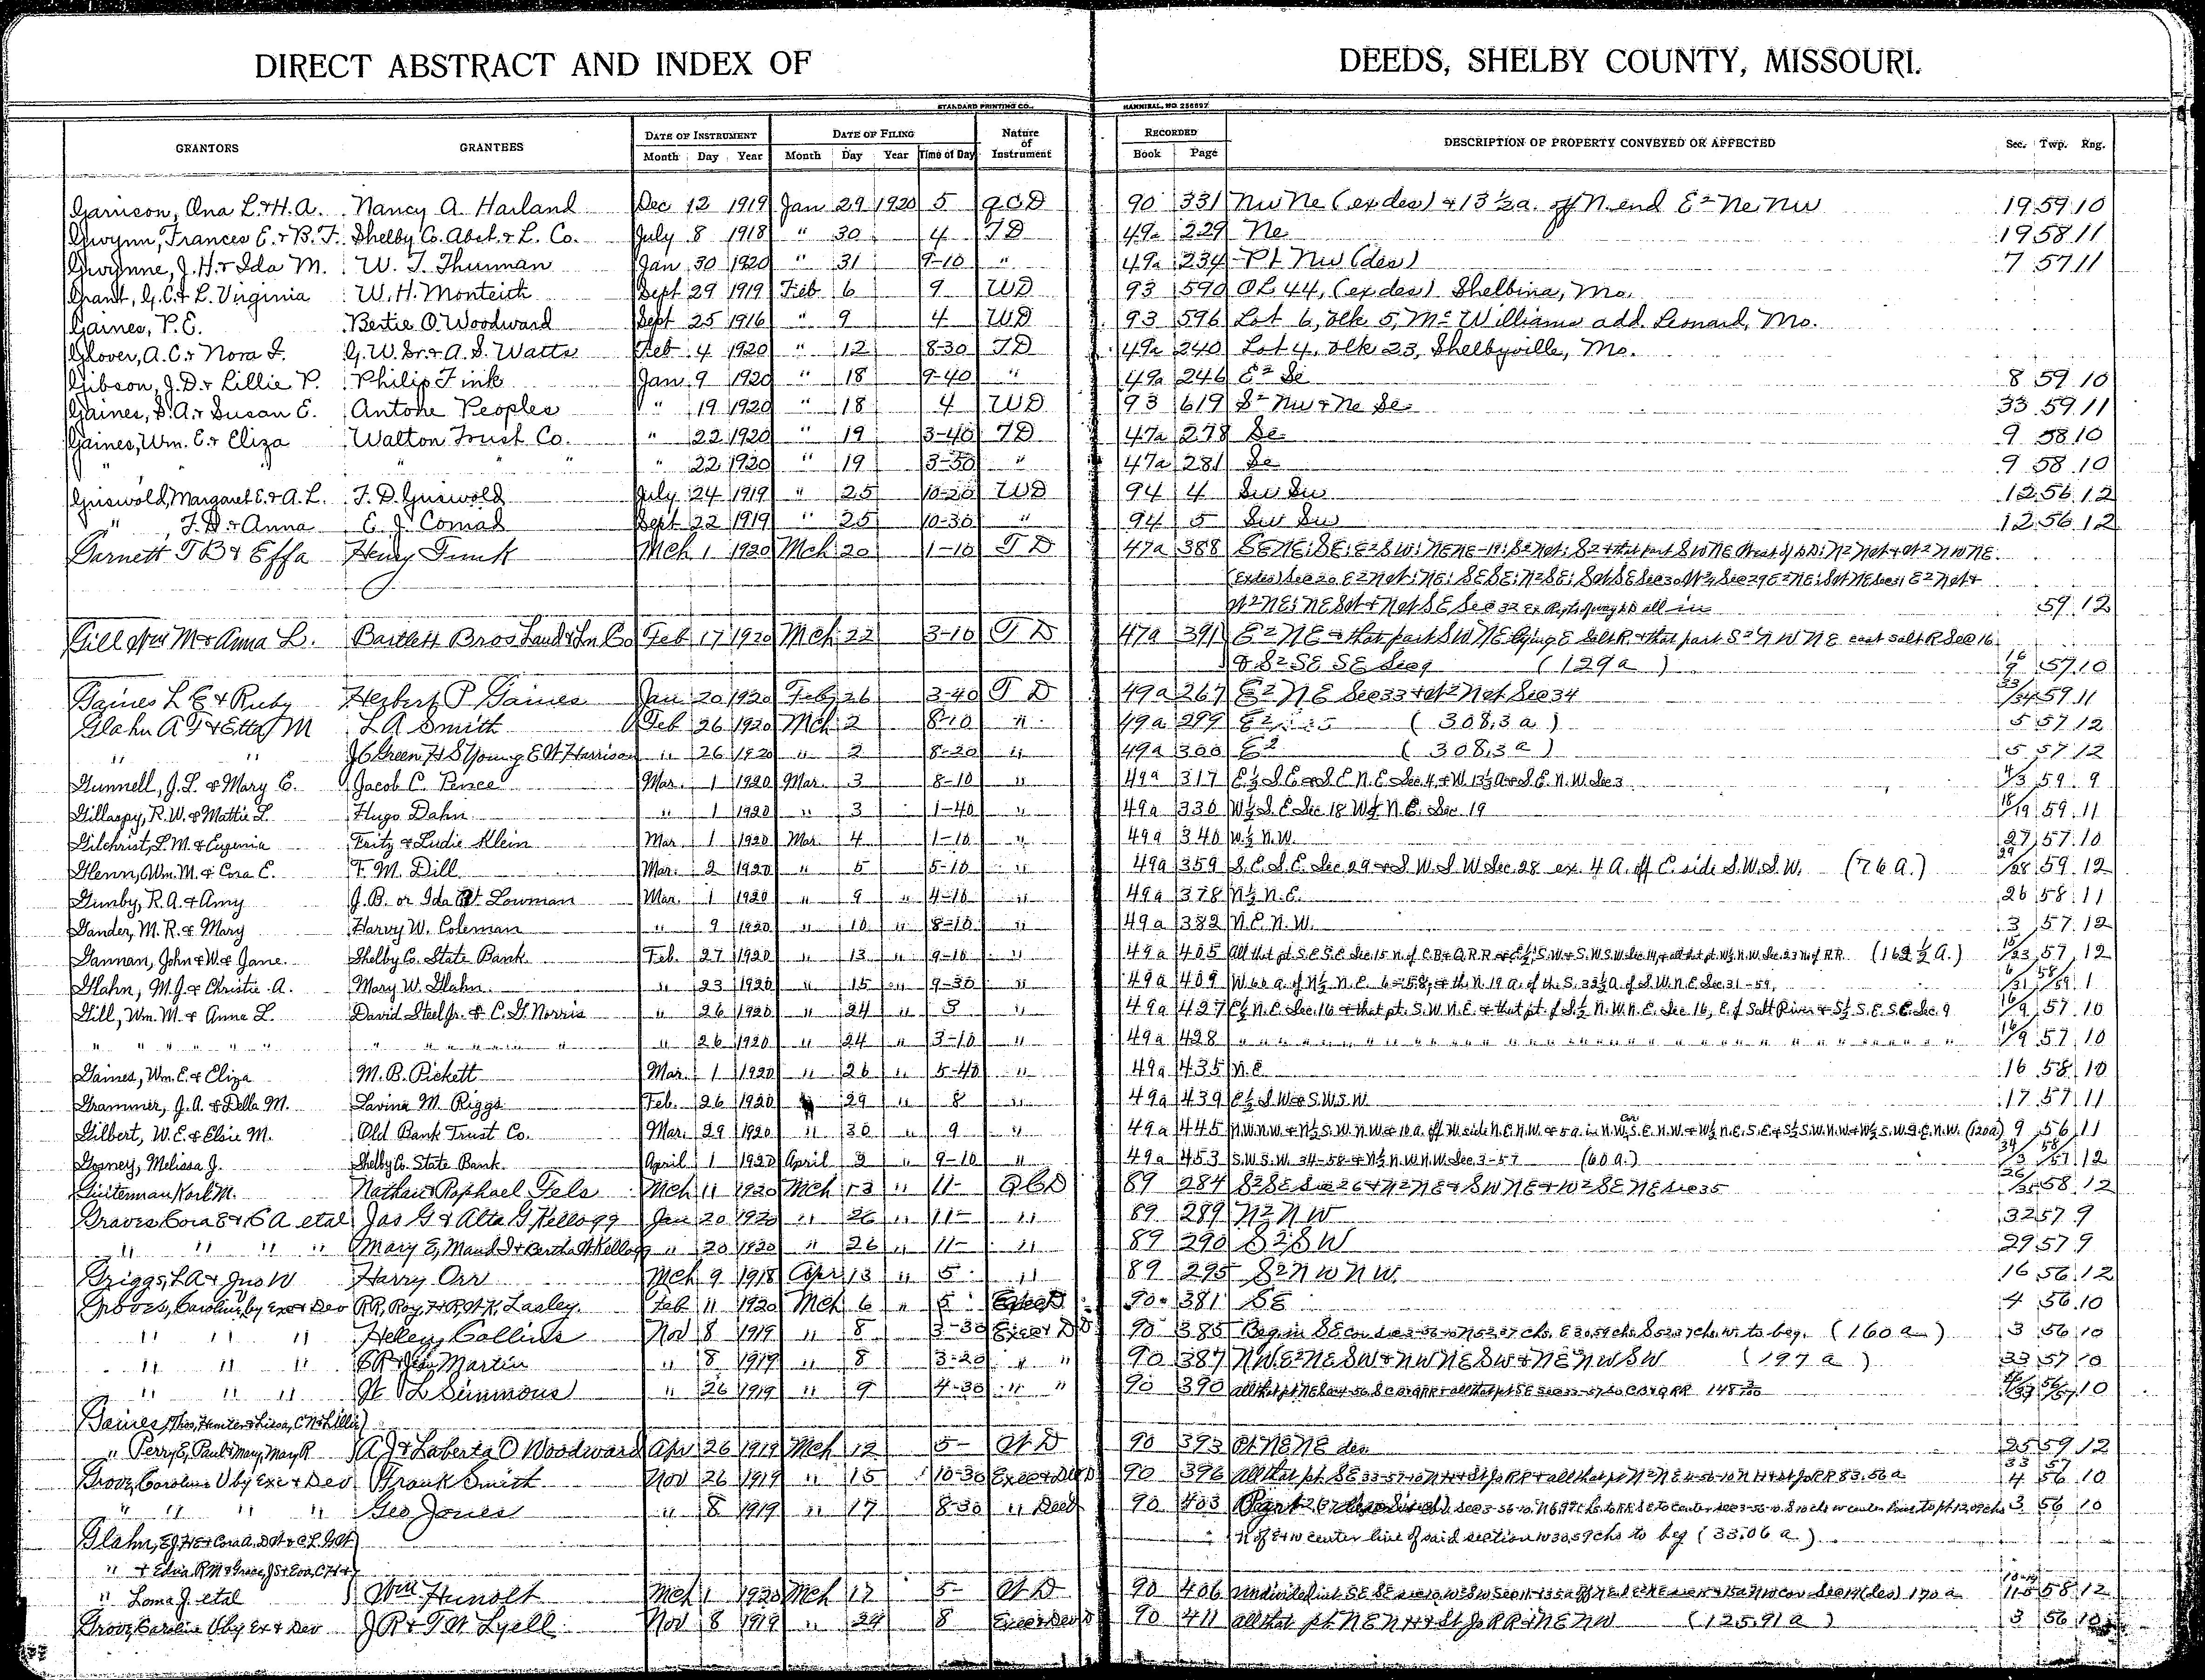 DIRECT ABSTRACT AND INDEX OF DEEDS, SHELBY COUNTY, MISSOURI.
STANDARD PRINTING CO., HANNIBAL, MO. 256897
GRANTORS GRANTEES DATE OF INSTRUMENT DATE OF FILING Nature of Instrument RECORDED DESCRIPTION OF PROPERTY CONVEYED OR AFFECTED Sec. Twp. Rng.
Month Day Year Month Day Year Time of Day Book Page
Garrison, Ona L. & H.A. Nancy A. Harland Dec 12 1919 Jan 29 1920 5 QCD 90 331 Nw Ne (ex des) & 13 ½ a. off N. end E² Ne Nw 19 59 10
Gwynn, Frances E. & B.F. Shelby Co. Abst. & L. Co. July 8 1918 " 30 4 TD 49a 229 Ne 19 58 11
Gwynne, J.H. & Ida M. W. T. Thurman Jan 30 1920 " 31 9-10 " 49a 234 Pt Nw (des) 7 57 11
Grant, G.C. & L. Virginia W.H. Monteith Sept 29 1919 Feb 6 9 WD 93 590 OL 44, (ex des) Shelbina, Mo.
Gaines, P.E. Bertie O. Woodward Sept 25 1916 " 9 4 WD 93 596 Lot 6, Blk 5, McWilliams add. Leonard, Mo.
Glover, A.C. & Nora F. G.W. Sr. & A.S. Watts Feb 4 1920 " 12 8-30 TD 49a 240 Lot 4, Blk 23, Shelbyville, Mo.
Gibson, J.D. & Lillie P. Philip Fink Jan 9 1920 " 18 9-40 " 49a 246 E² Se 8 59 10
Gaines, S.A. & Susan E. Antone Peoples " 19 1920 " 18 4 WD 93 619 S² Nw & Ne Se 33 59 11
Gaines, Wm. E. & Eliza Walton Trust Co. " 22 1920 " 19 3-40 TD 47a 278 Se 9 58 10
" " " " " 22 1920 " 19 3-50 " 47a 281 Se 9 58 10
Griswold, Margaret E. & A.L. F. D. Griswold July 24 1919 " 25 10-20 WD 94 4 Sw Sw 12 56 12
" , F.D. & Anna E. J. Comad Sept 22 1919 " 25 10-30 " 94 5 Sw Sw 12 56 12
Garnett T B & Effa Henry Funk Mch 1 1920 Mch 20 1-10 T D 47a 388 SENE; SE; E²SW; NENE-19; S²
(Ex des) Sec 20 E² NW; NE; SESE; N²SE;
W²NE; NESW & NW SE Sec 32 Ex Right of way all in 59 12
Gill Wm M & Anna L. Bartlett Bros Land & Ln Co Feb 17 1920 Mch 22 3-10 T D 47a 391 E² NE & that part SWNE lying E Salt R. & that part S² NWNE east Salt R Sec 16
& S² SE SE Sec 9 (129 a) 16/9 57 10
Gaines L E & Ruby Herbert P Gaines Jan 20 1920 Feb 26 3-40 T D 49a 267 E² NE Sec 33 & W² NW Sec 34 33/34 59 11
Glahn A F & Etta M L A Smith Feb 26 1920 Mch 2 8-10 " 49a 299 E² (308.3 a) 5 57 12
" " J C Green H S Young E W Harrison " 26 1920 " 2 8-20 " 49a 300 E² (308.3 a) 5 57 12
Gunnell, J.L. & Mary E. Jacob C. Pence Mar. 1 1920 Mar. 3 8-10 " 49a 317 E½ S.E. & S.E. N.E. Sec. 4, & W. 13½ A of S.E. N.W. Sec 3 4/3 59 9
Gillaspy, R.W. & Mattie L. Hugo Dahn " 1 1920 " 3 1-40 " 49a 330 W½ S.E. Sec. 18 W½ N.E. Sec. 19 18/19 59 11
Gilchrist, L.M. & Eugenia Fritz & Ludie Klein Mar 1 1920 Mar 4 1-10 " 49a 340 W½ N.W. 27 57 10
Glenn, Wm. M. & Cora E. F. M. Dill Mar. 2 1920 " 5 5-10 " 49a 359 S.E. S.E. Sec. 29 & S.W. S.W. Sec. 28 ex. 4 A. off E. side S.W. S.W. (76 a.) 29/28 59 12
Gunby, R.A. & Amy J.B. or Ida Lowman Mar. 1 1920 " 9 " 4-10 " 49a 378 N½ N.E. 26 58 11
Gander, M.R. & Mary Harvy W. Coleman " 9 1920 " 10 " 8-10 " 49a 382 N.E. N.W. 3 57 12
Gannan, John & W. & Jane. Shelby Co. State Bank Feb. 27 1920 " 13 " 9-10 " 49a 405 All that pt. S.E. S.E. Sec. 15 N. of C.B. & Q.R.R. & E½ S.W. & S.W. S.W. Sec. 14, & all that pt. W½ N.W. Sec. 23 N. of R.R. (162 ½ A.) 15/23 57 12
Glahn, M.J. & Christie A. Mary W. Glahn " 23 1920 " 15 " 9-30 " 49a 409 W. 60 a. of N½ N.E. 6-58, & the N. 19 a. of the S. 33½ A. of S.W. N.E. Sec. 31-59. 6/31 58/59 1
Gill, Wm. M. & Anna L. David Steel Jr. & C.G. Norris " 26 1920 " 24 " 3 " 49a 427 E½ N.E. Sec. 16 & that pt. S.W. N.E. & that pt. of S.½ N.W. N.E. Sec 16, E. of Salt River & S½ S.E. S.E. Sec. 9 16/9 57 10
" " " " " " " " " " 26 1920 " 24 " 3-10 " 49a 428 " " " " " " " " 16/9 57 10
Gaines, Wm. E. & Eliza M. B. Pickett Mar. 1 1920 " 26 " 5-40 " 49a 435 N.E. 16 58 10
Grammer, J.A. & Della M. Lavina M. Riggs Feb. 26 1920 29 " 8 " 49a 439 E½ S.W. & S.W. S.W. 17 57 11
Gilbert, W.E. & Elsie M. Old Bank Trust Co. Mar. 29 1920 " 30 " 9 " 49a 445 N.W. N.W. & N½ S.W. N.W. & 10 a. off W. side N.E. N.W. & 5 a. in N.W. Cor. S.E. N.W. & (120a) 9 56 11
Gosney, Melissa J. Shelby Co. State Bank April 1 1920 April 2 " 9-10 " 49a 453 S.W. S.W. 34-58 & N½ N.W. N.W. Sec. 3-57 (60 a.) 34/3 58/57 12
Guiterman Karl M. Nathan & Raphael Fels Mch 11 1920 Mch 13 " 11- QCD 89 284 S²SE Sec 26 & N²NE & SWNE & W²SENE Sec 35 26/35 58 12
Graves Cora E & C A etal Jas G & Alta G Kellogg Jan 20 1920 " 26 " 11- " 89 289 N² N W 32 57 9
" " " " Mary E, Maud I & Bertha A Kellogg " 20 1920 " 26 " 11- " 89 290 S² S W 29 57 9
Griggs, L A & Jno W Harry Orr Mch 9 1918 Apr 13 " 5 " 89 295 S² N W N W. 16 56 12
Groves, Caroline, by Exe & Dev RR, Roy, H & R, W K. Lasley. Feb 11 1920 Mch 6 " 5 90 381 SE 4 56 10
" " " Helen Collins Nov 8 1919 " 8 3-30 Exec & D D 90 385 Beg in SE cor Sec 3-56-10 N 52.37 chs. E 30.59 chs. S 52.37 chs. W to beg. (160 a) 3 56 10
" " " Martin " 8 1919 " 8 3-20 " " 90 387 NW, E²NESW & NWNESW & NENWSW (197 a) 33 57 10
" " " Simmons " 26 1919 " 9 4-30 " " 90 390 10
Gaines, Thos, Hunter & Lissa, C N & Lillie
" Perry E, Paul & Mary, Mary R A J & Laberta O Woodward Apr 26 1919 Mch 12 5- W D 90 393 Pt NENE des 25 59 12
Grove, Caroline V by Exe & Dev Frank Smith Nov 26 1919 " 15 10-30 Exec & Dev D 90 396 all that pt. SE 33-57-10 N H & St Jo RR & all that pt N²NE 4-56-10 N H & St Jo RR 83.56 a 33/4 57/56 10
" " " " Geo Jones " 8 1919 " 17 8-30 " Deed 90 403 3 56 10
N of E & W center line of said section W 30.59 chs to beg (33.06 a)
Glahn, E J, H E & Cora A, D W & C L, G W
" & Edna, R M & Grace, J S & Eva, C H &
" Loma J. etal Will Hunolt Mch 1 1920 Mch 17 5- W D 90 406 170 a 58 12
Grove, Caroline V by Ex & Dev J R & T W Lyell Nov 8 1919 " 24 8 Exec & Dev D 90 411 all that pt. N E N H & St Jo R R & N E N W (125.91 a) 3 56 10